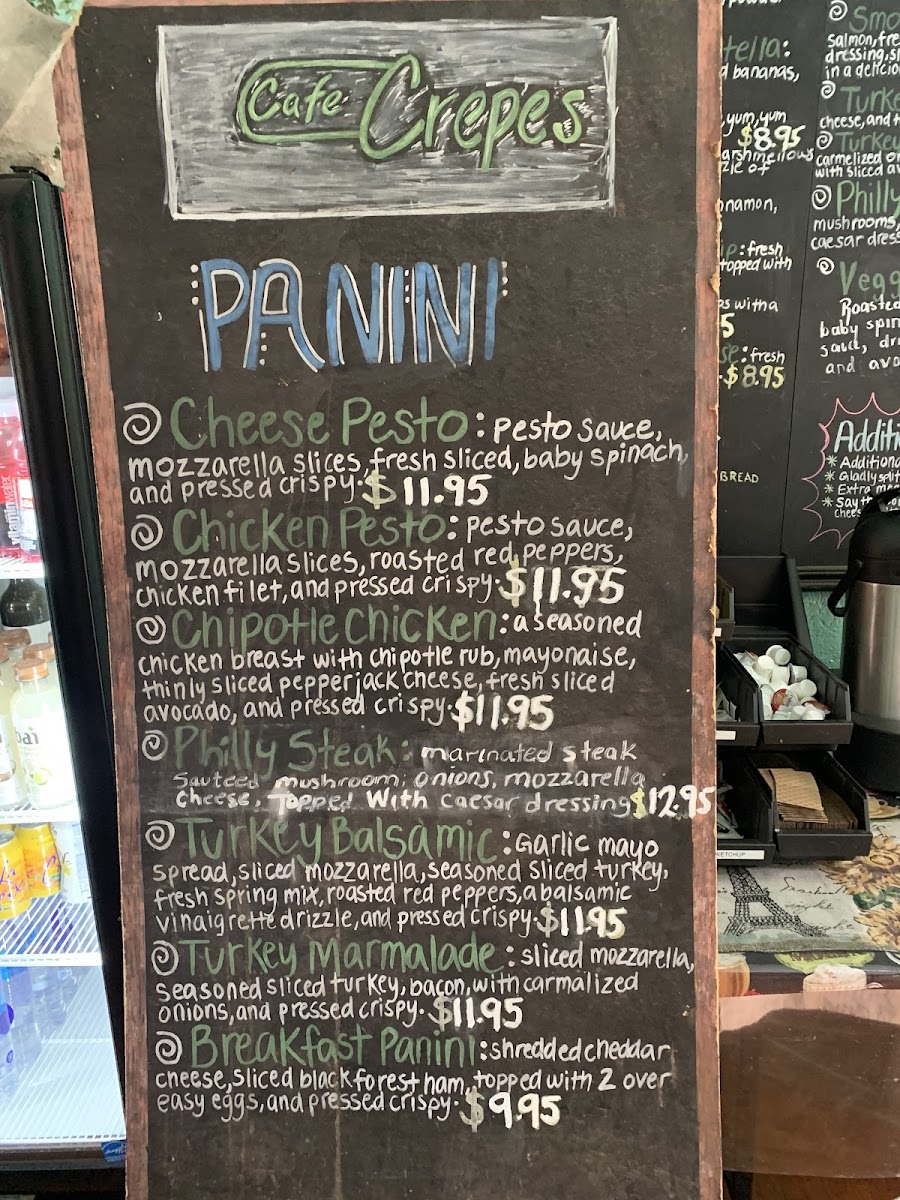 Cafe Crepes
PANINI
Cheese Pesto: pesto sauce,
mozzarella slices, fresh sliced, baby spinach,
and pressed crispy. $11.95
Chicken Pesto: pesto sauce,
mozzarella slices, roasted red peppers,
chicken filet, and pressed crispy. $11.95
Chipotle Chicken: a seasoned
chicken breast with chipotle rub, mayonaise,
thinly sliced pepperjack cheese, fresh sliced
avocado, and pressed crispy. $11.95
Philly Steak: marinated steak
Sauteed mushroom, onions, mozzarella
cheese, Topped With Caesar dressing $12.95
Turkey Balsamic: Garlic mayo
spread, sliced mozzarella, seasoned sliced turkey,
fresh spring mix, roasted red peppers, a balsamic
vinaigrette drizzle, and pressed crispy. $11.95
Turkey Marmalade: sliced mozzarella,
seasoned sliced turkey, bacon, with carmalized
onions, and pressed crispy. $11.95
Breakfast Panini: shredded cheddar
cheese, sliced black forest ham, topped with 2 over
easy eggs, and pressed crispy. $9.95
bananas,
yum, yum
$8.95
of
: fresh
topped with
with a
: fresh
$8.95
BREAD
salmon,
dressing,
in a
cheese, and
carmelized
with sliced
Philly
mushrooms,
caesar
baby
sauce,
and
* Gladly
* Extra
* Say
KETCHUP